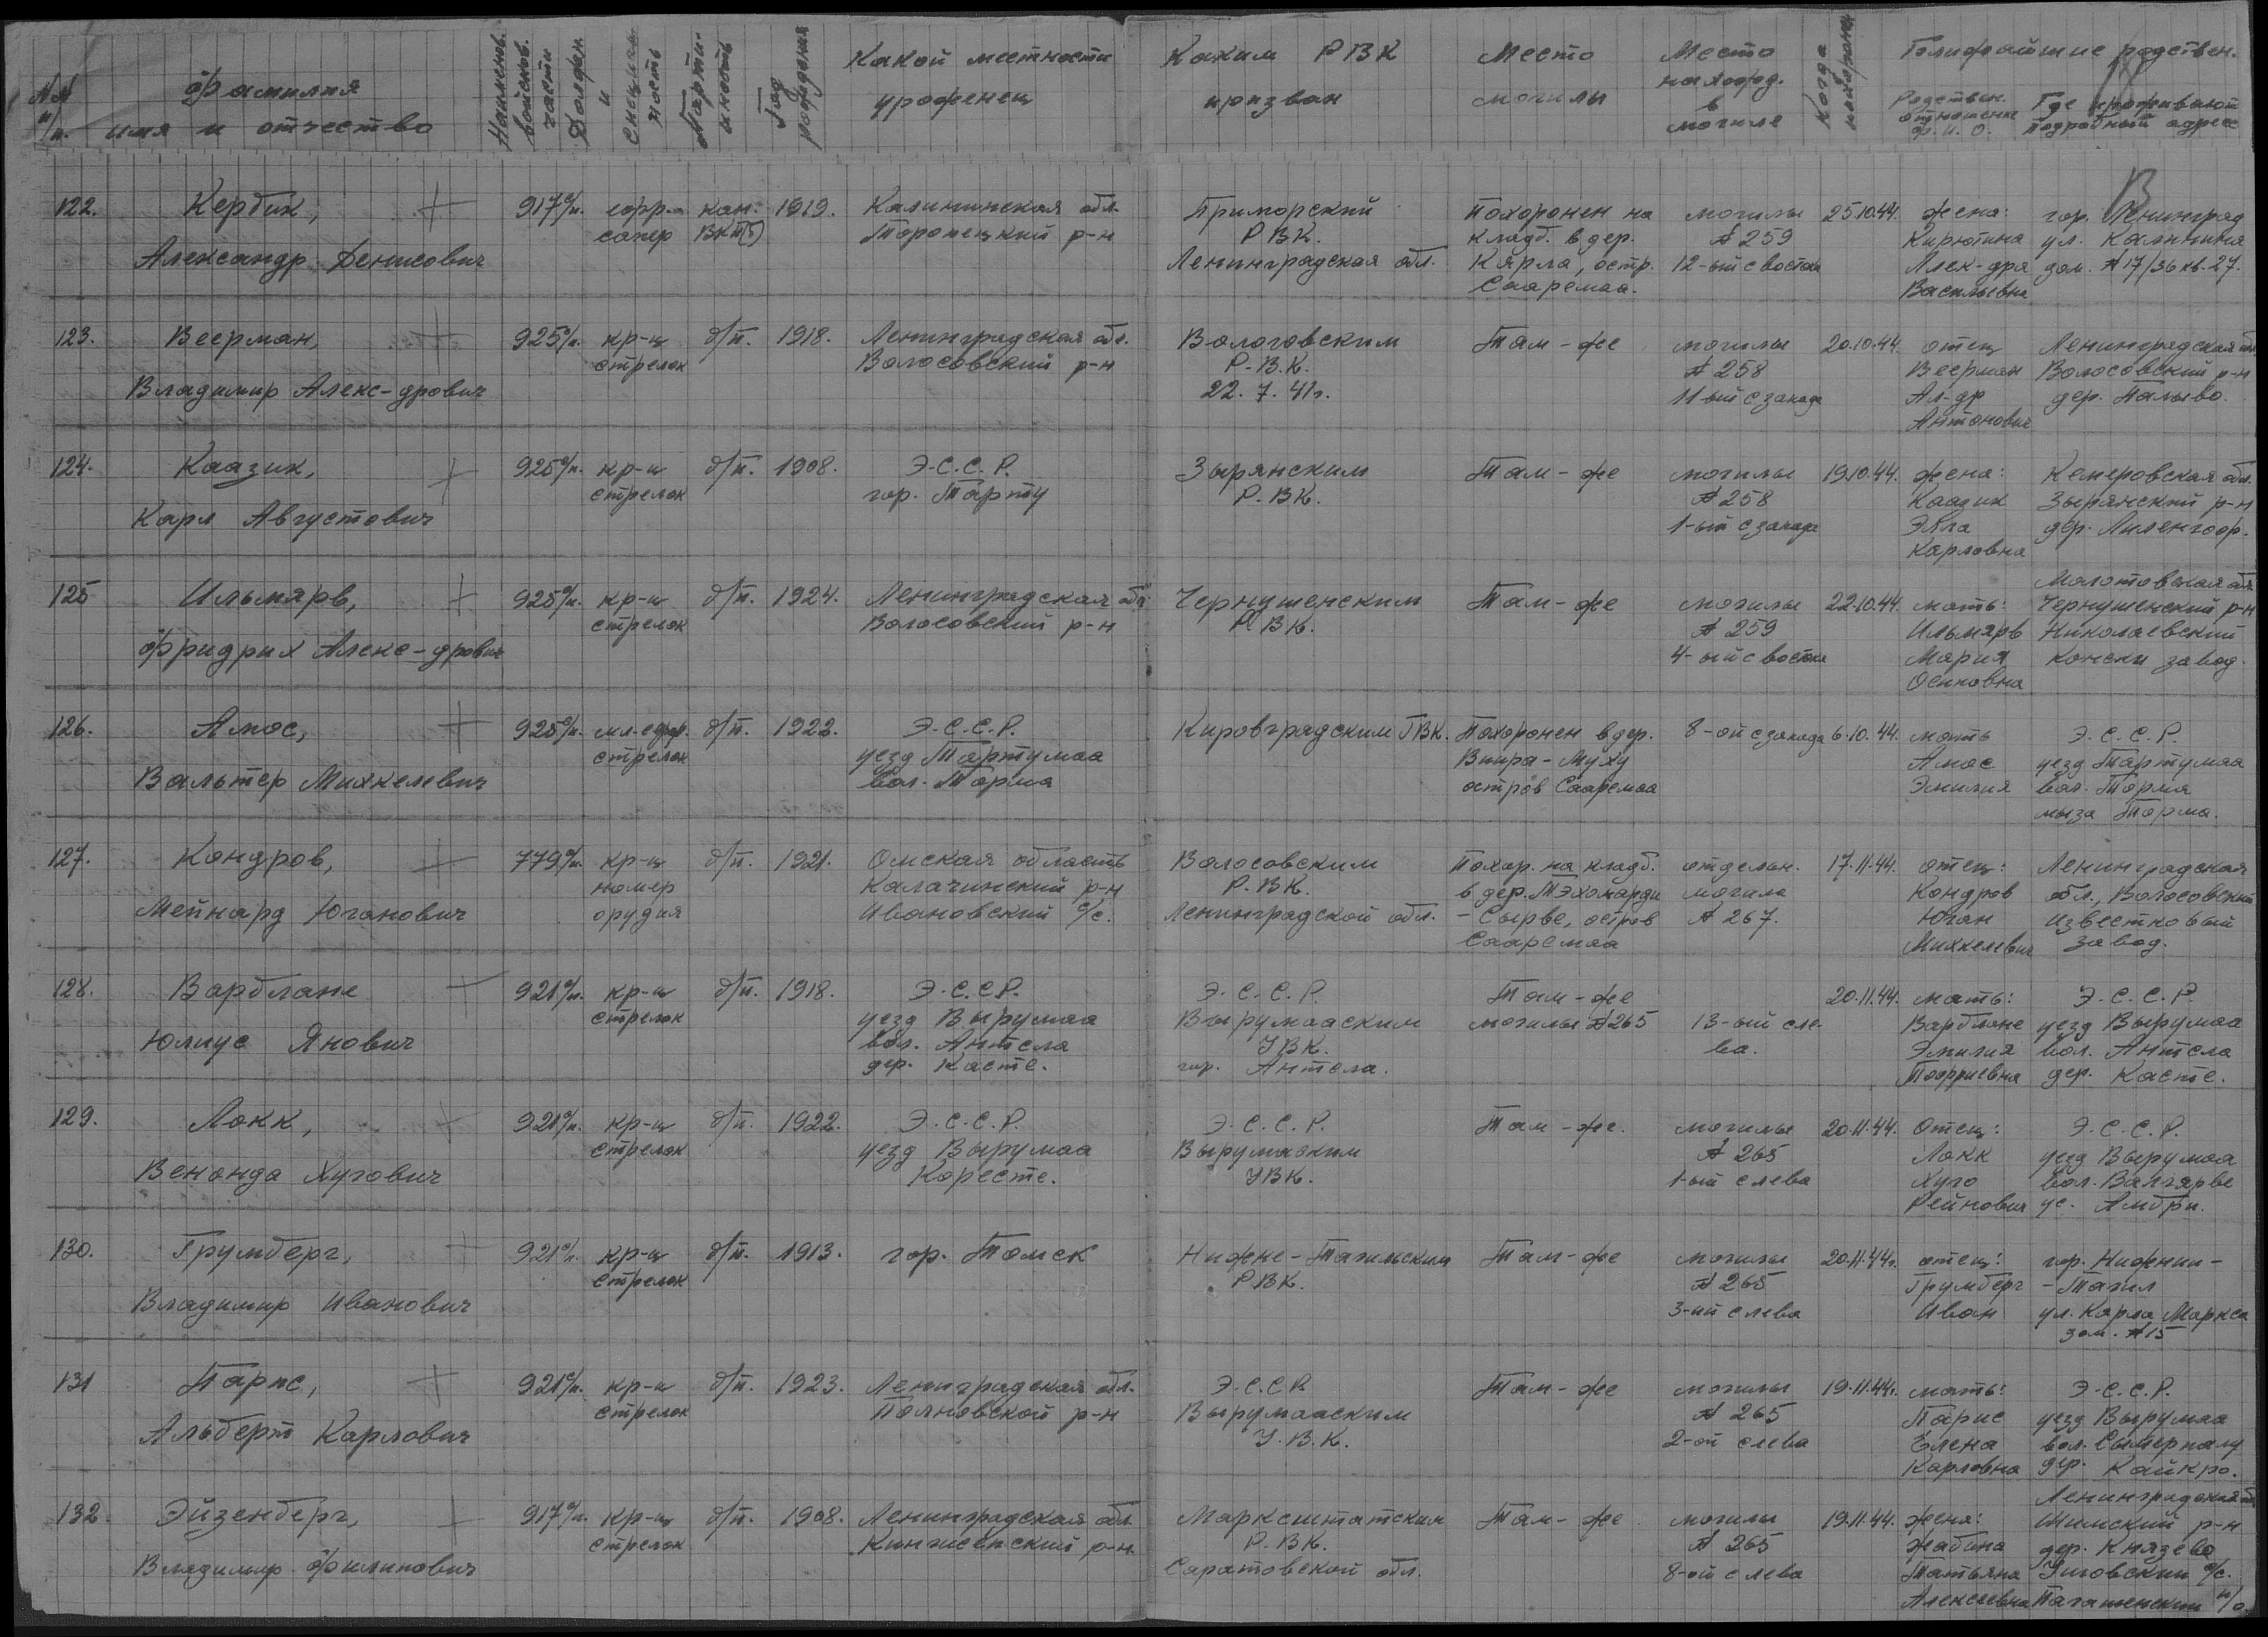 №№ п/п.
Фамилия имя и отчество
Наименов. войсков. части
Должн. и специальность
Партийность
Год рождения
Какой местности уроженец
Каким РВК призван
Место могилы
Место нахожд. в могиле
Когда похоронен
Ближайшие родствен.
Родствен. отношение ф. и. о.
Где проживают подробный адрес
122. Кербик, 917 с/п. ефр. кан. 1919. Калининская обл. Приморский Похоронен на могилы 25.10.44. жена: гор. Ленинград
сапер ВКП(б) Торопецкий р-н РВК. кладб. в дер. № 259 Кирютина ул. Калинина
Александр Денисович Ленинградская обл. Кярла, остр. 12-ый с востока Алек-дра дом. № 17/36 кв. 27.
Сааремаа. Васильевна
123. Веерман, 925 с/п. кр-ц б/п. 1918. Ленинградская обл. Вологовским Там-же могилы 20.10.44. отец Ленинградская обл
стрелок Волосовский р-н Р.В.К. № 258 Веерман Волосовский р-н
Владимир Алекс-дрович 22. 7. 41г. 11-ый с запада Ал-др дер.
Антонович
124. Каазик, 925 с/п. кр-ц б/п. 1908. Э.С.С.Р. Зырянским Там-же могилы 19.10.44. жена: Кемеровская обл.
стрелок гор. Тарту Р.ВК. № 258 Каазик Зырянский р-н
Карл Августович 1-ый с запада Элла дер.
Карловна
Молотовская обл
125 Ильмярв, 925 с/п. кр-ц б/п. 1924. Ленинградская обл. Чернушенским Там-же могилы 22.10.44. мать: Чернушенский р-н
стрелок Волосовский р-н РВК. № 259 Ильмярв Николаевский
Фридрих Алекс-дрович 4-ый с востока Мария конски завод.
Осиповна
126. Амос, 925 с/п. мл. серж. б/п. 1922. Э.С.С.Р. Кировградским ГВК. Похоронен в дер. 8-ой с запада 6.10.44. мать Э.С.С.Р.
стрелок уезд Тартумаа Виира-Муху Амос уезд Тартумаа
Вальтер Михкелевич вол. Торма остров Сааремаа Эмилия вол. Торма
мыза Торма.
127. Кондров, 779 с/п. кр-ц б/п. 1921. Омская область Волосовским Похор. на кладб. отдельн. 17.11.44. отец: Ленинградская
номер Калачинский р-н Р.ВК. в дер. Тэхомарди могила Кондров обл., Волосовский
Мейнард Юганович орудия Ивановский с/с. Ленинградской обл. - Сырве, остров № 267. Юган известковый
Сааремаа Михкелевич завод.
128. Варблане 921 с/п. кр-ц б/п. 1918. Э.С.С.Р. Э.С.С.Р. Там-же 20.11.44. мать: Э.С.С.Р.
стрелок уезд Вырумаа Вырумааским могилы № 265 13-ый сле- Варблане уезд Вырумаа
Юлиус Янович вол. Антсла УВК. ва. Эмилия вол. Антсла
дер. Касте. гор. Антсла. дер. Касте.
129. Локк, 921 с/п. кр-ц б/п. 1922. Э.С.С.Р. Э.С.С.Р. Там-же. могилы 20.11.44. Отец: Э.С.С.Р.
стрелок уезд Вырумаа Вырумаским № 265 Локк уезд Вырумаа
Венонда Хугович Коресте. УВК. 1-ый слева Хуго вол. Валгярве
Рейнович ус. Амбри.
130. Грумберг, 921 с/п. кр-ц б/п. 1913. гор. Томск Нижне-Тагильским Там-же могилы 20.11.44г. отец: гор. Нижнии-
стрелок РВК. № 265 Грумберг -Тагил
Владимир Иванович 3-ий слева Иван ул. Карла Маркса
дом. № 15
131 Парис, 921 с/п. кр-ц б/п. 1923. Ленинградская обл. Э.С.С.Р. Там-же могилы 19.11.44г. мать: Э.С.С.Р.
стрелок Полновской р-н Вырумааским № 265 Парис уезд Вырумаа
Альберт Карлович У.В.К. 2-ой слева Елена вол. Сымерпалу
Карловна дер. Кайкро.
Ленинградская обл
132. Эйзенберг, 917 с/п. кр-ц б/п. 1908. Ленинградская обл. Марксштатским Там-же могилы 19.11.44. жена: Шимский р-н
стрелок Кингисепский р-н. Р.ВК. № 265 Жабина дер. Князево
Владимир Филипович Саратовской обл. 8-ой слева Татьяна с/с.
Алексеевна п/о.